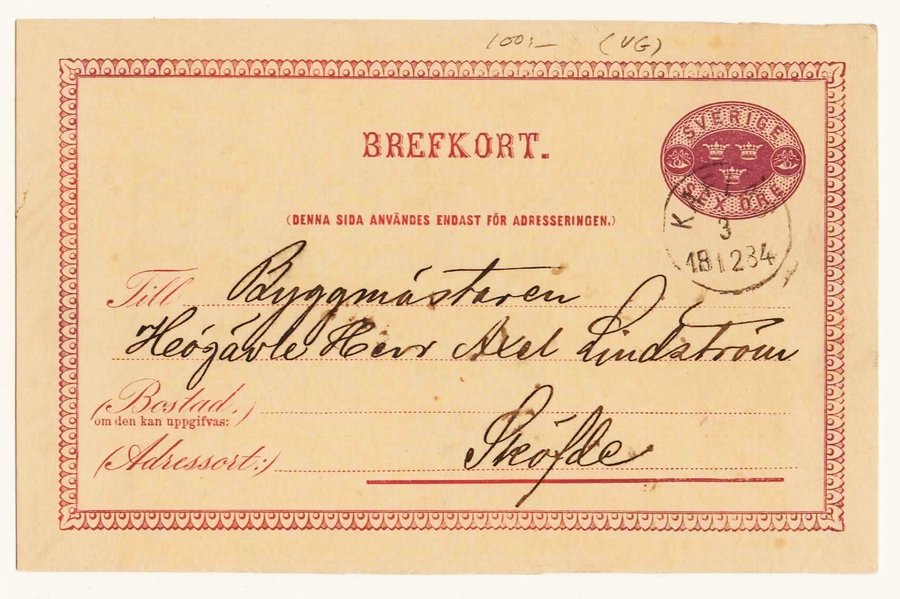 100:- (VG)
BREFKORT.
SVERIGE
SEX ÖRE
(DENNA SIDA ANVÄNDES ENDAST FÖR ADRESSERINGEN.)
K
3
18 12 84
Till Byggmästaren
Högävle Herr Axel Lindström
(Bostad.)
om den kan uppgifvas:
(Adressort:) Sköfde